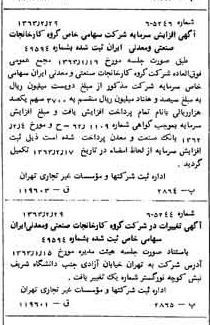 شماره ۶-۵۲۴۶ ۱۳۶۳/۲/۲۹
آگهی افزایش سرمایه شرکت سهامی خاص گروه کارخانجات
صنعتی ومعدنی ایران ثبت شده بشماره ۴۹۵۹۴
طبق صورت جلسه مورخ ۱۳۶۳/۱/۱۶ مجمع عمومی
فوق‌العاده شرکت گروه کارخانجات صنعتی و معدنی ایران سهامی
خاص سرمایه شرکت مذکور از مبلغ دویست میلیون ریال
به مبلغ سیصد و هفتاد میلیون ریال منقسم به ۳۷۰۰ سهم یکصد
هزارریالی بانام تمام پرداخت افزایش یافت و مبلغ افزایش
سرمایه بموجب گواهی شماره ۱۱۰۹ - ح ۶۲ مورخ ۲/۴
۱۳۶۲ بانک صنعت و معدن پرداخت شده است ذیل ثبت
افزایش سرمایه از لحاظ امضاء در تاریخ ۱۳۶۳/۲/۱۷ تکمیل
گردید .
اداره ثبت شرکتها و مؤسسات غیر تجاری تهران
پ - ۲۸۶۴ ق - ۱۱۹۶۰۳
شماره ۶-۵۲۴۴ ۱۳۶۳/۲/۲۹
آگهی تغییرات در شرکت گروه کارخانجات صنعتی ومعدنی‌ایران
سهامی خاص ثبت شده بشماره ۴۹۵۹۴
باستناد صورت جلسه هیئت مدیره مورخ ۱۳۶۳/۱/۱۵
آدرس شرکت به تهران خیابان آزادی جنب دانشگاه شریف
نبش کوچه نورگستر شماره یک تغییر یافت .
اداره ثبت شرکتها و مؤسسات غیر تجاری تهران
پ - ۲۸۶۵ ق - ۱۱۹۶۰۱